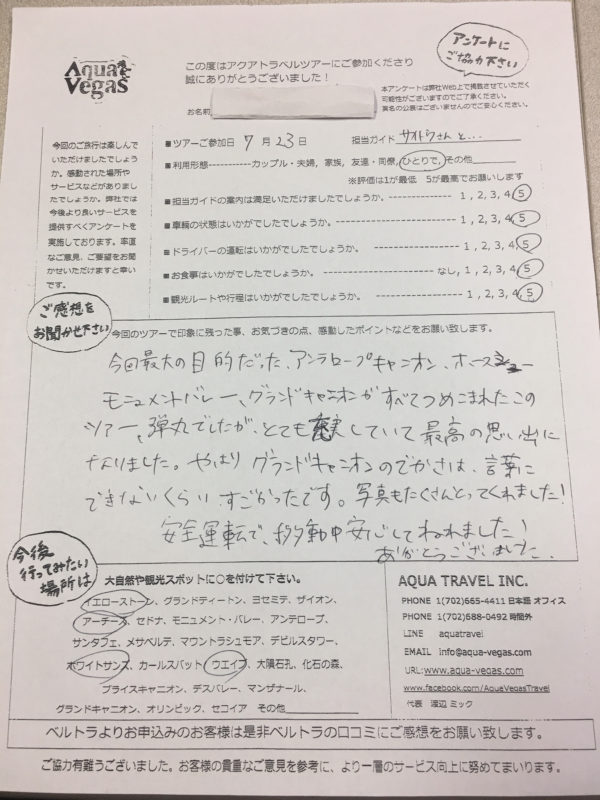 Aqua Vegas
この度はアクアトラベルツアーにご参加くださり
誠にありがとうございました！
アンケートに
ご協力下さい
本アンケートは弊社Web上で掲載させていただく
可能性がございますのでご了承ください。
実名の公表はございませんのでご安心ください。
お名前
今回のご旅行は楽しんで
いただけましたでしょう
か。感動された場所や
サービスなどがありまし
たでしょうか。弊社では
今後より良いサービスを
提供すべくアンケートを
実施しております。率直
なご意見、ご要望をお聞
かせいただけますと幸い
です。
■ツアーご参加日 7 月 23日 担当ガイド サイトウさんと...
■利用形態------------カップル・夫婦, 家族, 友達・同僚, ひとりで, その他
※評価は1が最低 5が最高でお願いします
■担当ガイドの案内は満足いただけましたでしょうか。------------ 1 , 2, 3, 4, 5
■車輌の状態はいかがでしたでしょうか。------------ 1 , 2, 3, 4, 5
■ドライバーの運転はいかがでしたでしょうか。------------ 1 , 2, 3, 4, 5
■お食事はいかがでしたでしょうか。------------ なし, 1 , 2, 3, 4, 5
■観光ルートや行程はいかがでしたでしょうか。------------ 1 , 2, 3, 4, 5
ご感想を
お聞かせ下さい
今回のツアーで印象に残った事、お気づきの点、感動したポイントなどをお願い致します。
今回最大の目的だった、アンテロープキャニオン、ホースシュー
モニュメントバレー、グランドキャニオンがすべてつめこまれたこの
ツアー、弾丸でしたが、とても充実していて最高の思い出に
なりました。やはりグランドキャニオンのでかさは、言葉に
できないくらいすごかったです。写真もたくさんとってくれました！
安全運転で、移動中安心してねれました！
ありがとうございました。
今後
行ってみたい
場所は
大自然や観光スポットに○を付けて下さい。
イエローストーン、グランドティートン、ヨセミテ、ザイオン、
アーチーズ、セドナ、モニュメント・バレー、アンテロープ、
サンタフェ、メサベルテ、マウントラシュモア、デビルスタワー、
ホワイトサンズ、カールスバット、ウエイブ、大隕石孔、化石の森、
ブライスキャニオン、デスバレー、マンザナール、
グランドキャニオン、オリンピック、セコイア その他
AQUA TRAVEL INC.
PHONE 1(702)665-4411 日本語 オフィス
PHONE 1(702)688-0492 時間外
LINE aquatravel
EMAIL info@aqua-vegas.com
URL:www.aqua-vegas.com
www.facebook.com/AquaVegasTravel
代表 渡辺 ミック
ベルトラよりお申込みのお客様は是非ベルトラの口コミにご感想をお願い致します。
ご協力有難うございました。お客様の貴重なご意見を参考に、より一層のサービス向上に努めてまいります。